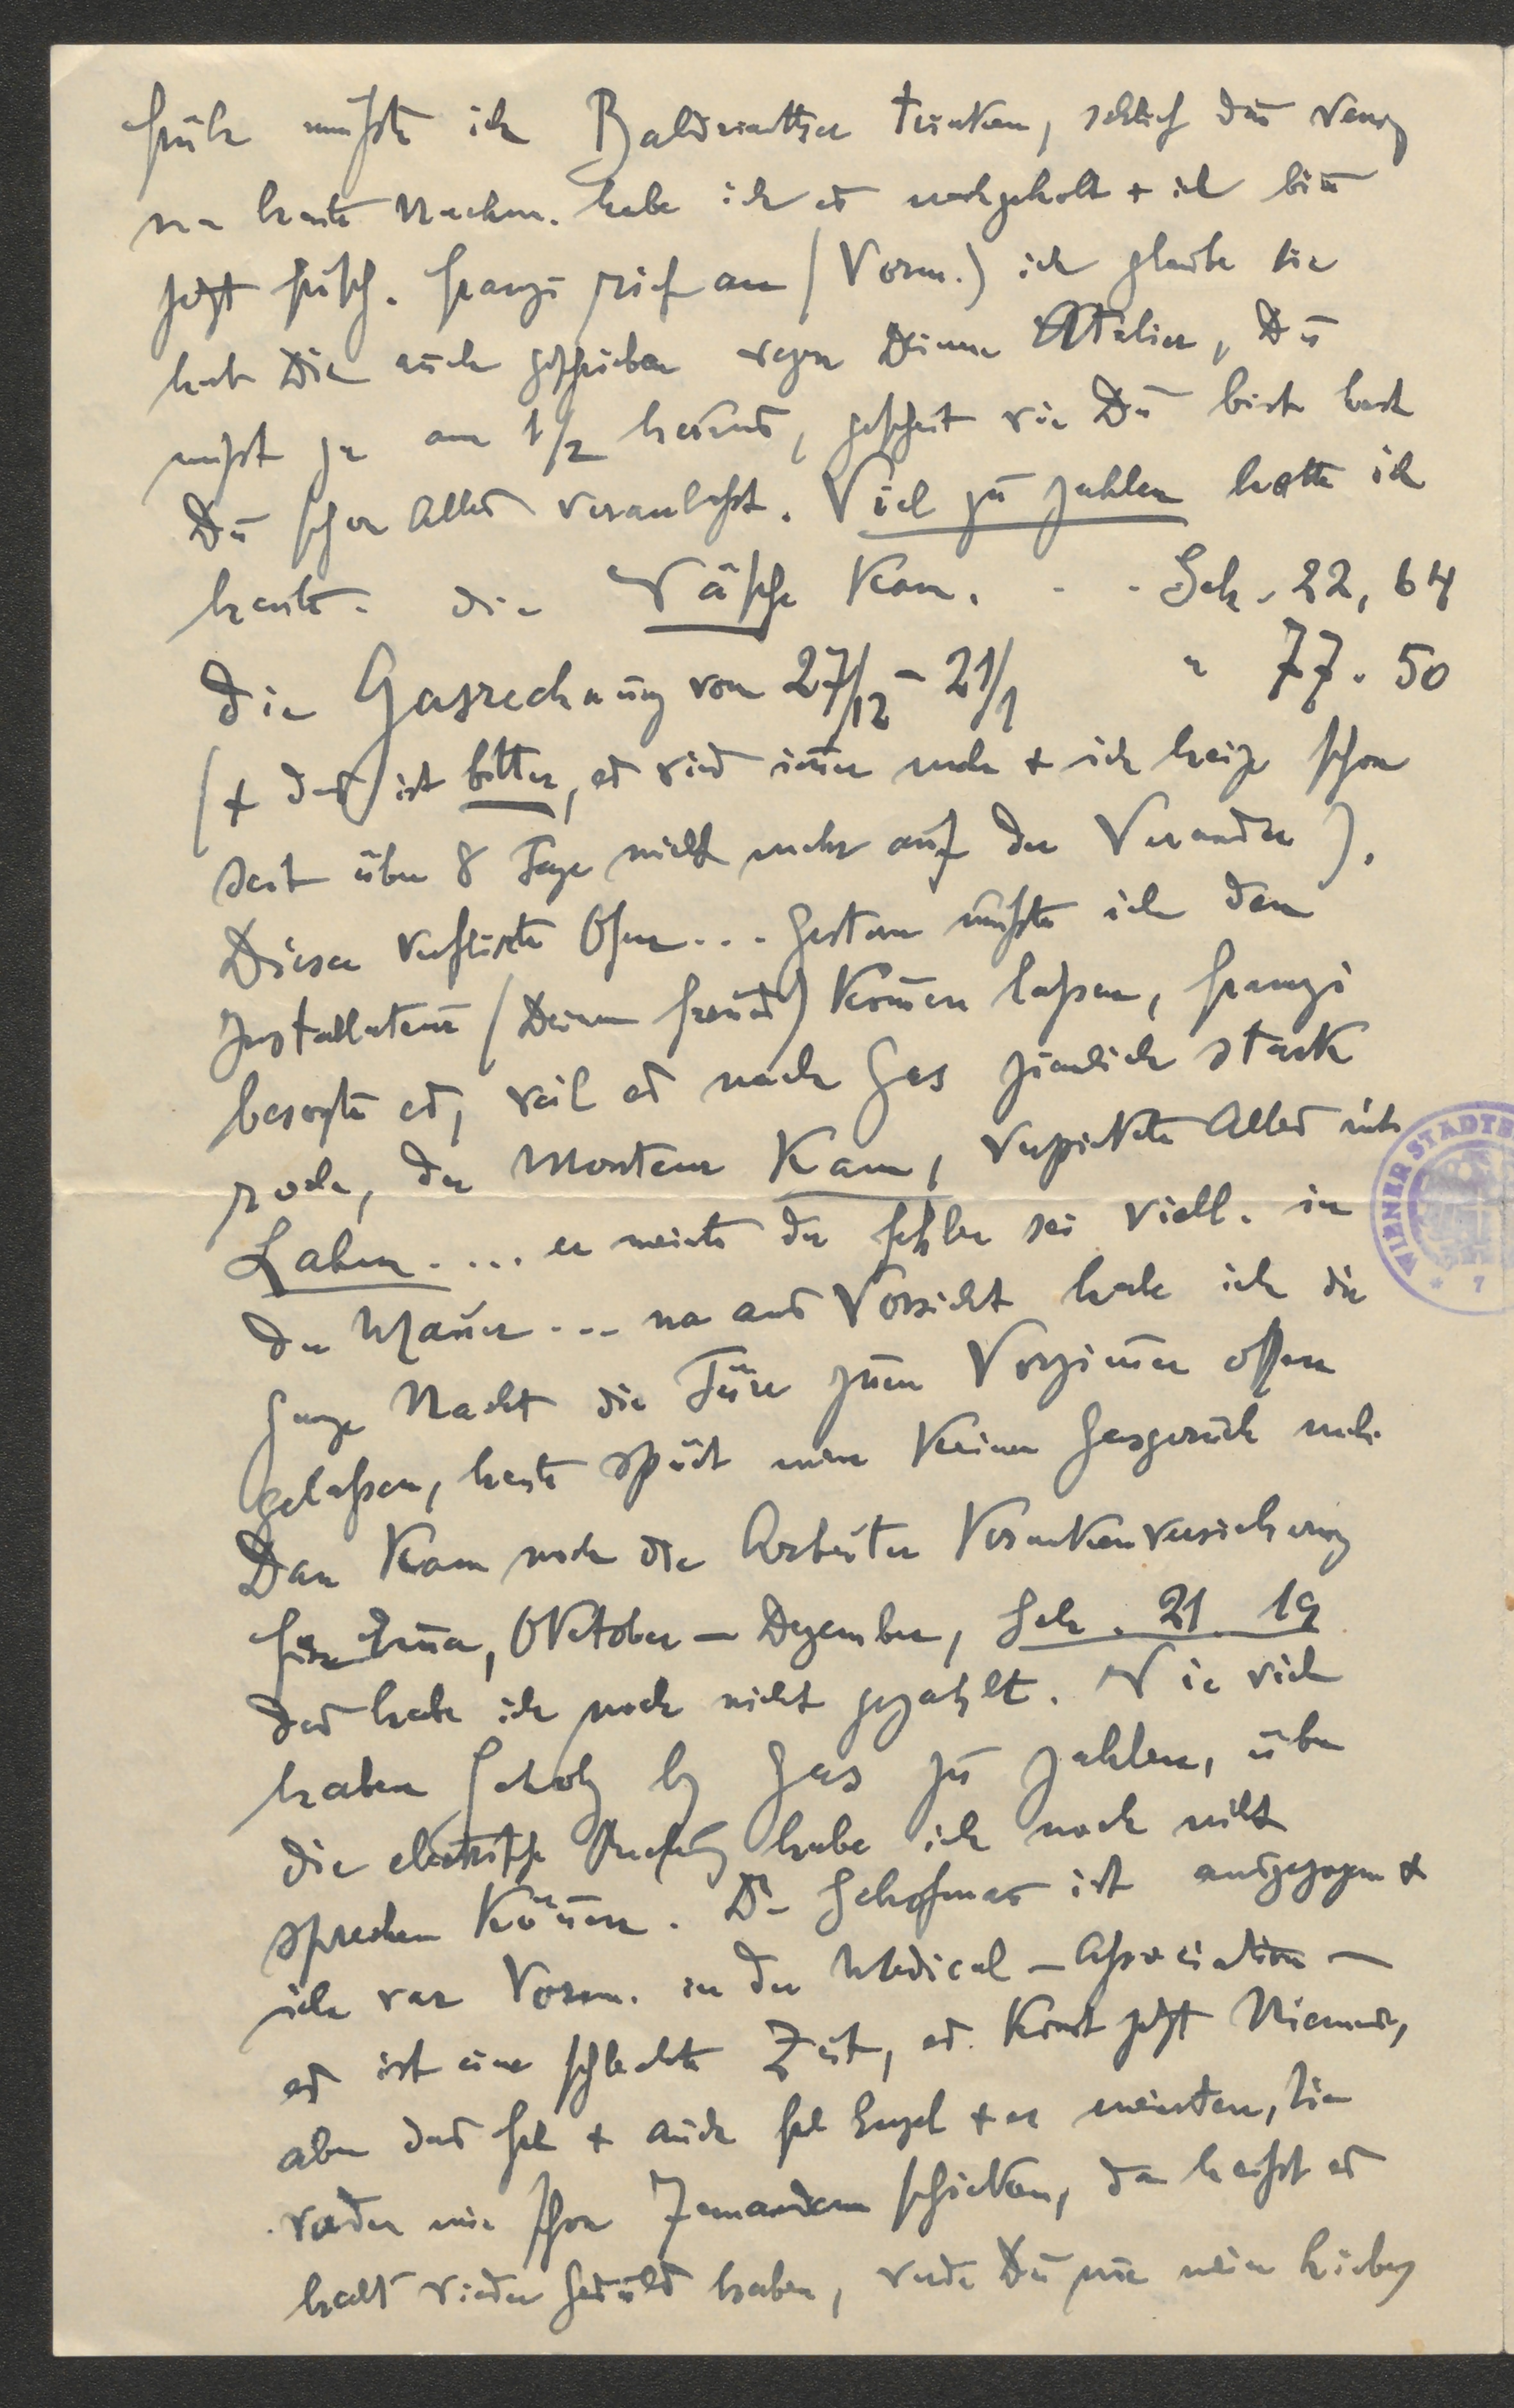 früh mußte ich Baldriantee trinken, schlief dann wenig
na heute Nachm. habe ich es nachgeholt + ich bin
jetzt frisch. Franzi rief an (Vorm.) ich glaube sie
hat Dir auch geschrieben wegen Deinem Atelier, Du
mußt ja am 1/2 heraus, gescheit wie Du bist hast
Du schon Alles veranlaßt. Viel zu zahlen hatte ich
heute. die Wäsche kam. . . Sch. 22,64
die Gasrechnung von 27/12 – 21/1 " 77.50
(+ das ist bitter, es wird im̄er mehr + ich heize schon
seit über 8 Tage nicht mehr auf der Veranda).
Dieser verflixte Ofen... Gestern mußte ich den
Installateur (Deinen Freund) kom̄en laßen, Franzi
besorgte es, weil es nach Gas ziemlich stark
roch, der Monteur kam, verpickte Alles mit
Lahm.... er meinte der Fehler sei viell. in
der Mauer... na aus Vorsicht habe ich die
ganze Nacht die Türe zum Vorzim̄er offen
gelaßen, heute spürt man keinen Gasgeruch mehr
Dan kam noch die Arbeiter Krankenversicherung
für Erna, Oktober – Dezember, Sch. 21.19
das habe ich noch nicht gezahlt. Wie viel
haben Scholz by Gas zu zahlen, über
die electrische Rechnung habe ich noch nicht
sprechen kön̄en. Dr ist ausgezogen +
ich war Vorm. in der Medical – Aßociation –
es ist eine schlechte Zeit, es kom̄t jetzt Niemand,
aber das Frl + auch Frl Engel + er meinten, sie
werden mir schon Jemandem schicken, da heißt es
halt wieder Geduld haben, werde Du mir mein Liebes